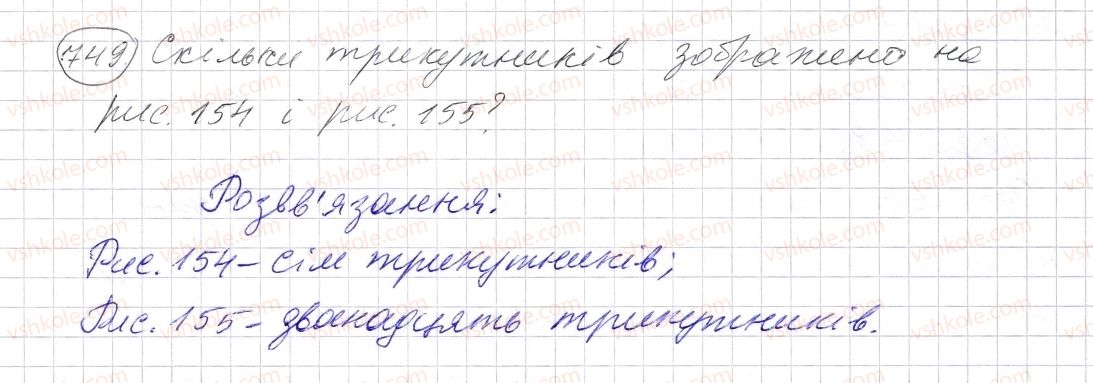 749 Скільки трикутників зображено на
рис. 154 і рис. 155?
Розвв'язання:
Рис. 154 – сім трикутників;
Рис. 155 – дванадцять трикутників.